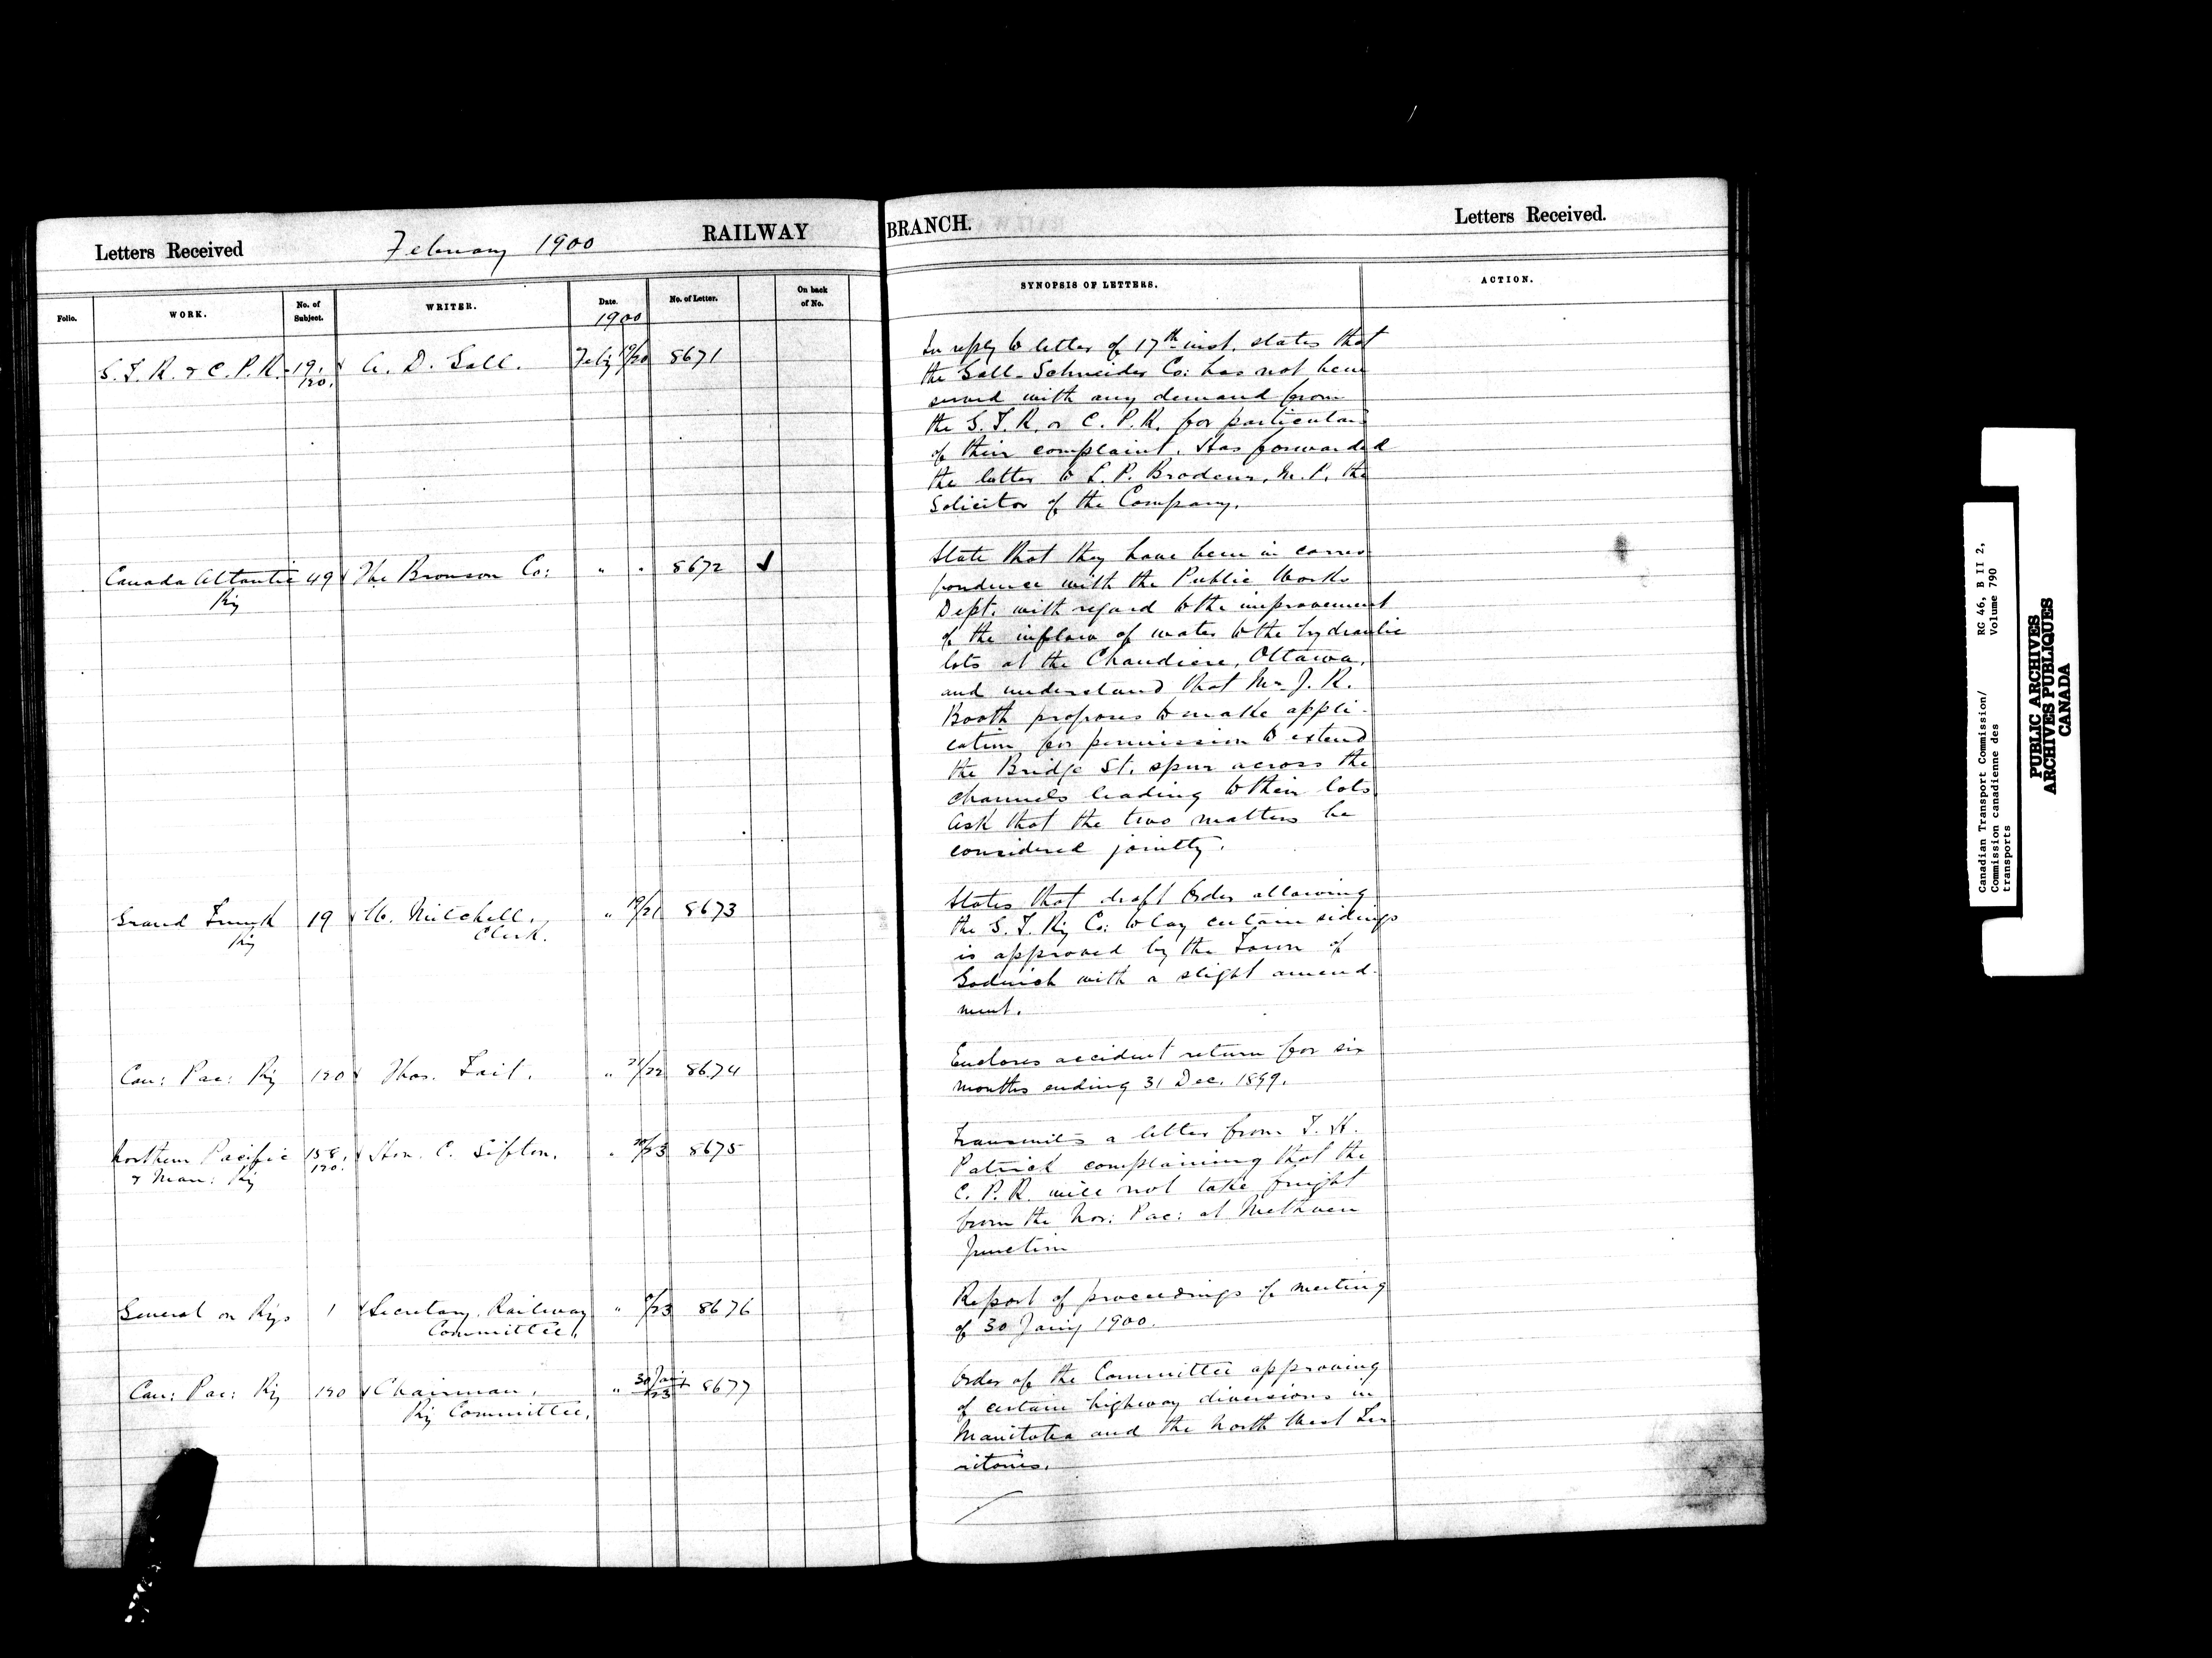 Letters Received
February 1900
RAILWAY
BRANCH.
Letters Received.
Folio.
WORK.
No. of
Subject.
WRITER.
Date.
1900
No. of Letter.
On back
of No.
SYNOPSIS OF LETTERS.
ACTION.
G.T.R. & C.P.R. 19. A. D. Gall. Feby 19/20 8671
120.
In reply to letter of 17th inst. states that
the Gall-Schneider Co: has not been
served with any demand from
the G.T.R. or C.P.R. for particulars
of their complaint. Has forwarded
the letter to L. P. Brodeur, M.P. the
Solicitor of the Company.
Canada Atlantic 49 The Bronson Co: " " 8672 ✓
Ry
State that they have been in corres
pondence with the Public Works
Dept. with regard to the improvement
of the inflow of water to the hydraulic
lots at the Chaudiere, Ottawa,
and understand that Mr J. R.
Booth proposes to make appli-
cation for permission to extend
the Bridge St. spur across the
channels leading to their lots
Ask that the two matters be
considered jointly.
Grand Trunk 19 W. Mitchell, " 19/21 8673
Ry Clerk.
States that draft Order allowing
the G.T. Ry Co: to lay certain sidings
is approved by the Town of
Goderich with a slight amend-
ment.
Can: Pac: Ry 120 Thos. Tait. " 21/22 8674
Encloses accident return for six
months ending 31 Dec. 1899.
Northern Pacific 158, Hon. C. Sifton. " 20/23 8675
& Man: Ry 120.
Transmits a letter from T. H.
Patrick complaining that the
C.P.R. will not take freight
from the Nor: Pac: at Methven
Junction
General on Rys 1 Secretary, Railway " /23 8676
Committee,
Report of proceedings of meeting
of 30 Jany 1900.
Can: Pac: Ry 120 Chairman, " 30 Jany/23 8677
Ry Committee,
Order of the Committee approving
of certain highway diversions in
Manitoba and the North West Ter
ritories.
Canadian Transport Commission/ RG 46, B II 2,
Commission canadienne des Volume 790
transports
PUBLIC ARCHIVES
ARCHIVES PUBLIQUES
CANADA